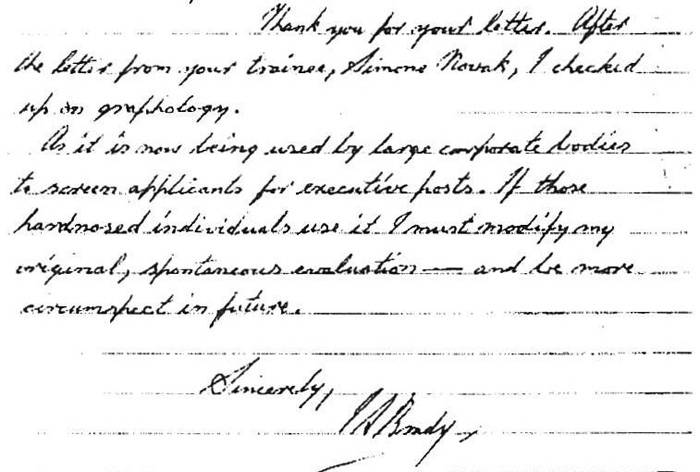 Thank you for your letter. After
the letter from your trainee, Simone Novak, I checked
up on graphology.
As it is now being used by large corporate bodies
to screen applicants for executive posts. If those
hardnosed individuals use it I must modify my
original, spontaneous evaluation — and be more
circumspect in future.
Sincerely,
I S Brady